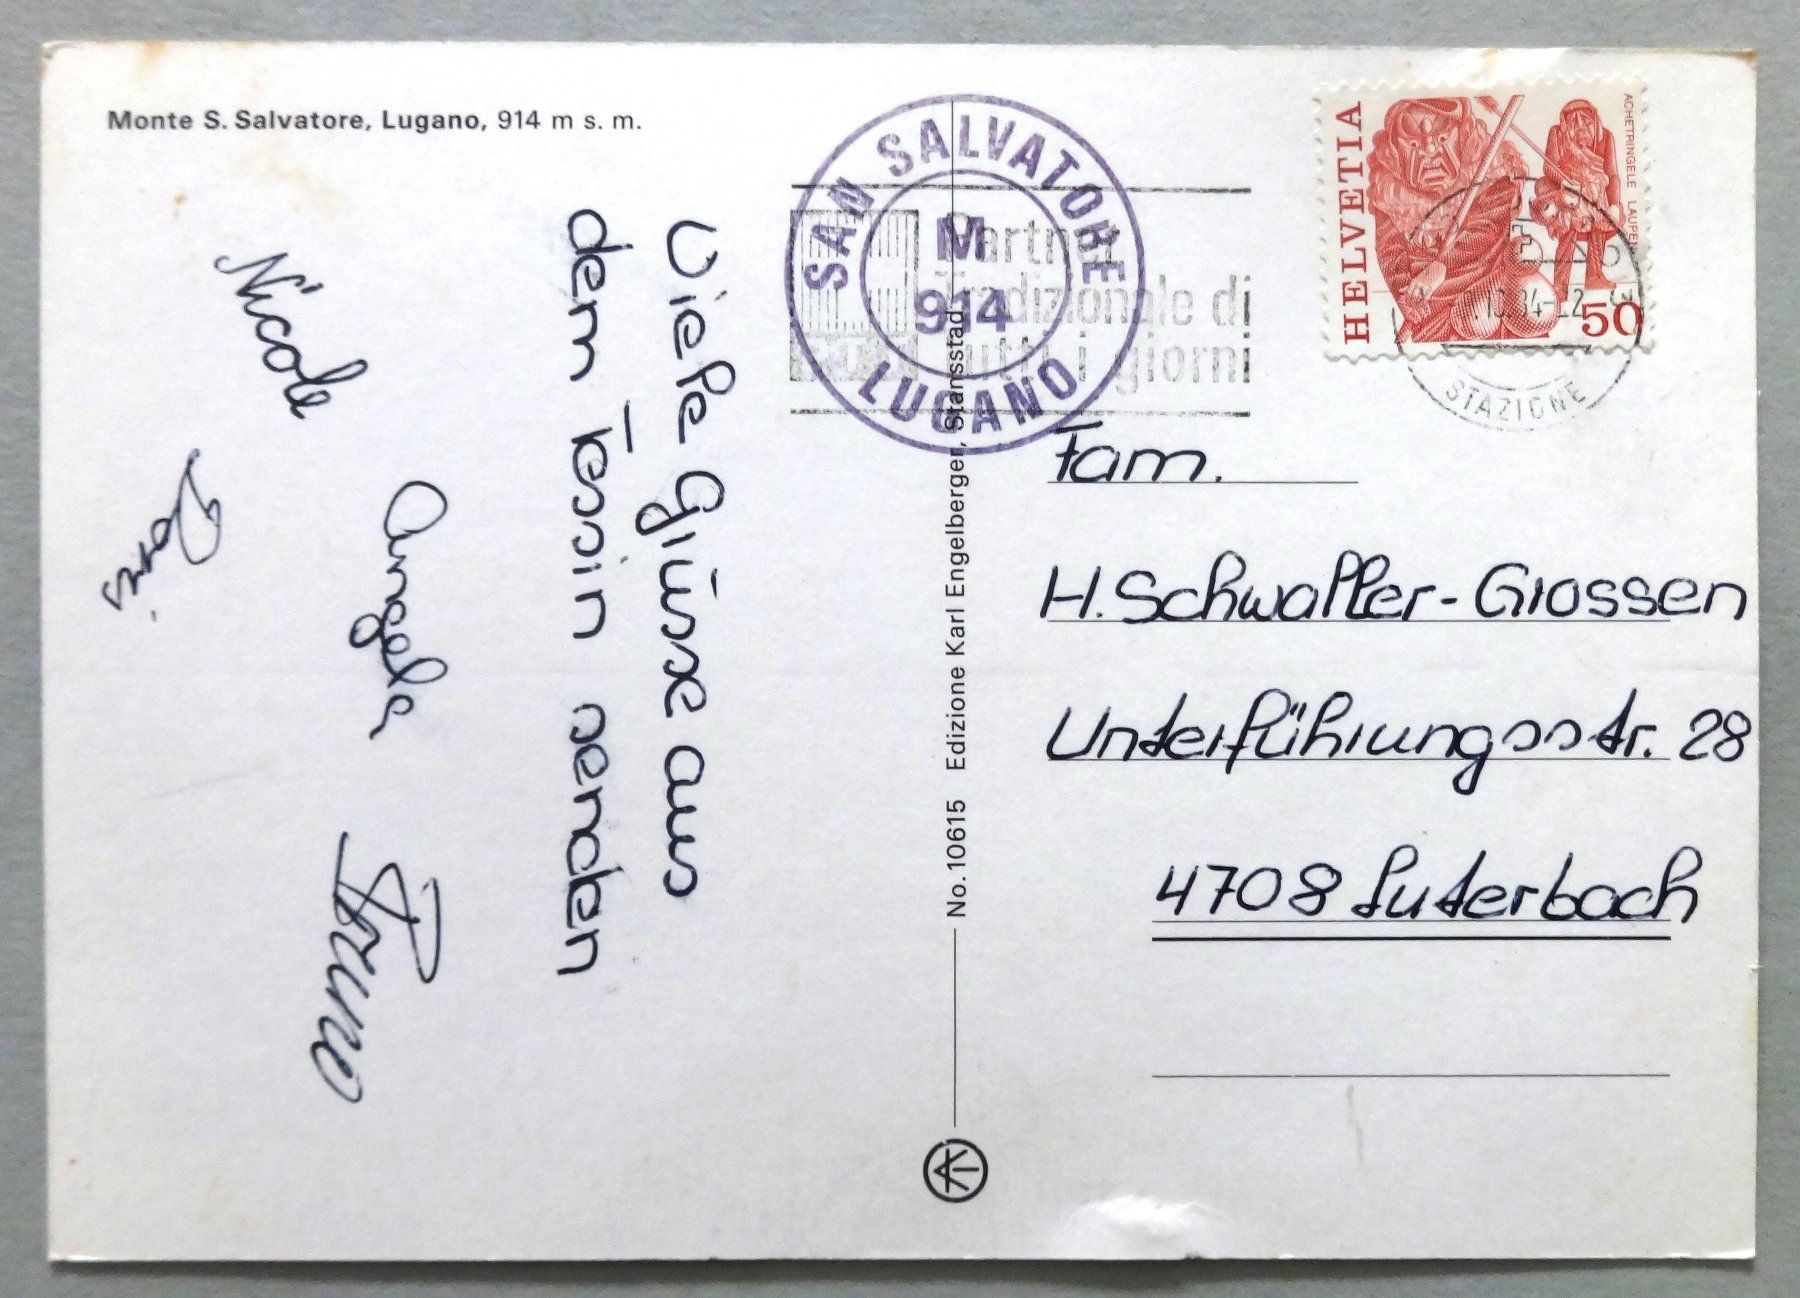 Monte S. Salvatore, Lugano, 914 m s. m.
Viele Grüsse aus
dem Tessin senden
Nicole
Angela
Doris
Bruno
No. 10615 Edizione Karl Engelberger, Stansstad
SAN SALVATORE
M
914
LUGANO
Partner
tradizionale di
tutti i giorni
HELVETIA
ACHETRINGELE LAUPEN
50
.10.84-12
STAZIONE
Fam.
H. Schwaller-Grossen
Unterführungsstr. 28
4708 Luterbach